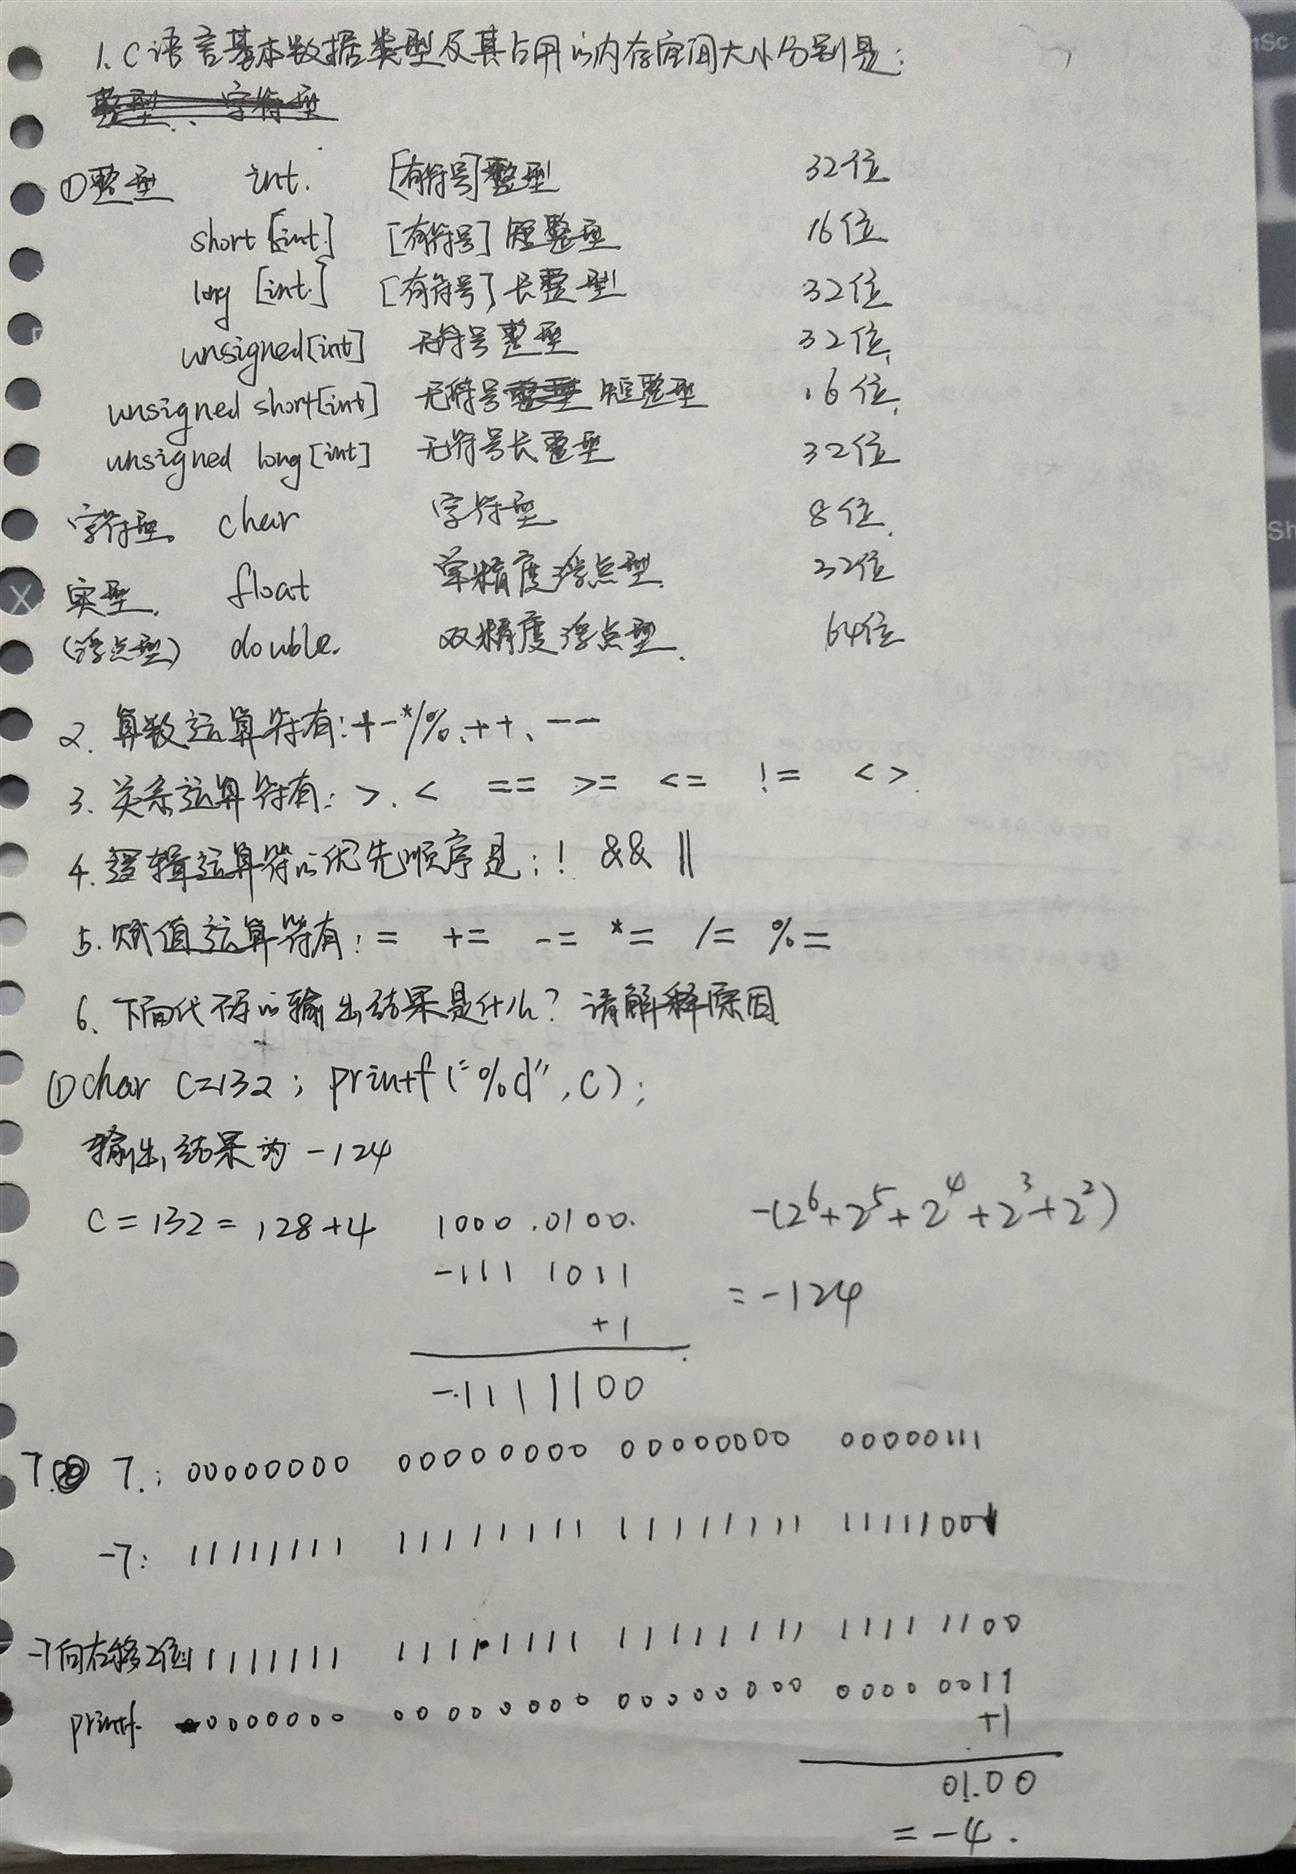 1. C语言基本数据类型及其占用的内存空间大小分别是:
整型、字符型
①整型 int. [有符号]整型 32位
short [int] [有符号] 短整型 16位
long [int] [有符号] 长整型 32位
unsigned [int] 无符号整型 32位
unsigned short [int] 无符号整型 短整型 16位
unsigned long [int] 无符号长整型 32位
字符型 char 字符型 8位
实型 float 单精度浮点型 32位
(浮点型) double. 双精度浮点型 64位
2. 算数运算符有: + - * / % 、++、 --
3. 关系运算符有: > . < == >= <= != < >
4. 逻辑运算符的优先顺序是: ! && ||
5. 赋值运算符有: = += -= *= /= %=
6、下面代码的输出结果是什么? 请解释原因
① char c=132; printf("%d", c);
输出结果为 -124
c = 132 = 128+4 1000 0100 -(2⁶+2⁵+2⁴+2³+2²)
-111 1011 = -124
+1
-1111100
7. 7: 00000000 00000000 00000000 00000111
-7: 11111111 11111111 11111111 11111001
-7向右移2位 11111111 11111111 11111111 1111 1100
printf -0000000 00000000 00000000 0000 0011
+1
0100
= -4.